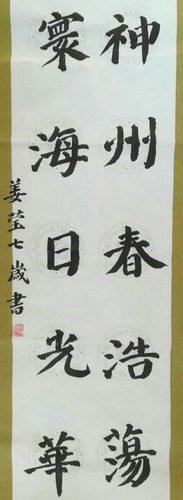 神州春浩蕩
寰海日光華
姜莹七歲書